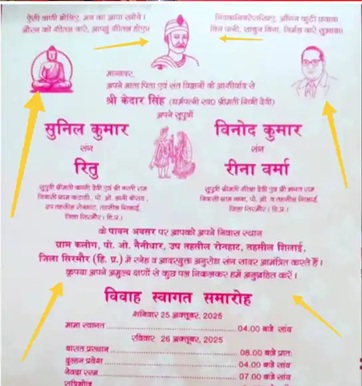 ऐसी वाणी बोलिए, मन का आपा खोये।
औरन को शीतल करे, आपहुं शीतल होए॥
निंदक नियरे राखिए, आँगन कुटी छवाय।
बिन पानी, साबुन बिना, निर्मल करे सुभाय॥
मान्यवर,
अपने माता पिता एवं संत विद्वानों के आशीर्वाद से
श्री केदार सिंह (धर्मपत्नी स्व० श्रीमती निक्की देवी)
अपने सुपुत्रों
सुनिल कुमार
संग
रितु
सुपुत्री श्रीमती कान्ता देवी एवं श्री कली राम
जिला सिरमौर (हि.प्र.)
विनोद कुमार
संग
रीना वर्मा
जिला सिरमौर (हि.प्र.)
के पावन अवसर पर आपको अपने निवास स्थान
ग्राम कलोग, पो. ओ. नैनीधार, उप तहसील रोनहाट, तहसील शिलाई,
जिला सिरमौर (हि. प्र.) में स्नेह व आदरयुक्त अनुरोध संग सादर आमंत्रित करते हैं।
कृपया अपने अमूल्य क्षणों से कुछ पल निकालकर हमें अनुग्रहित करें।
विवाह स्वागत समारोह
शनिवार 25 अक्तूबर, 2025
मामा स्वागत 04.00 बजे सांय
रविवार 26 अक्तूबर, 2025
बारात प्रस्थान 08.00 बजे प्रात:
दुल्हन प्रवेश 04.00 बजे सांय
नेवदा रस्म 07.00 बजे सांय